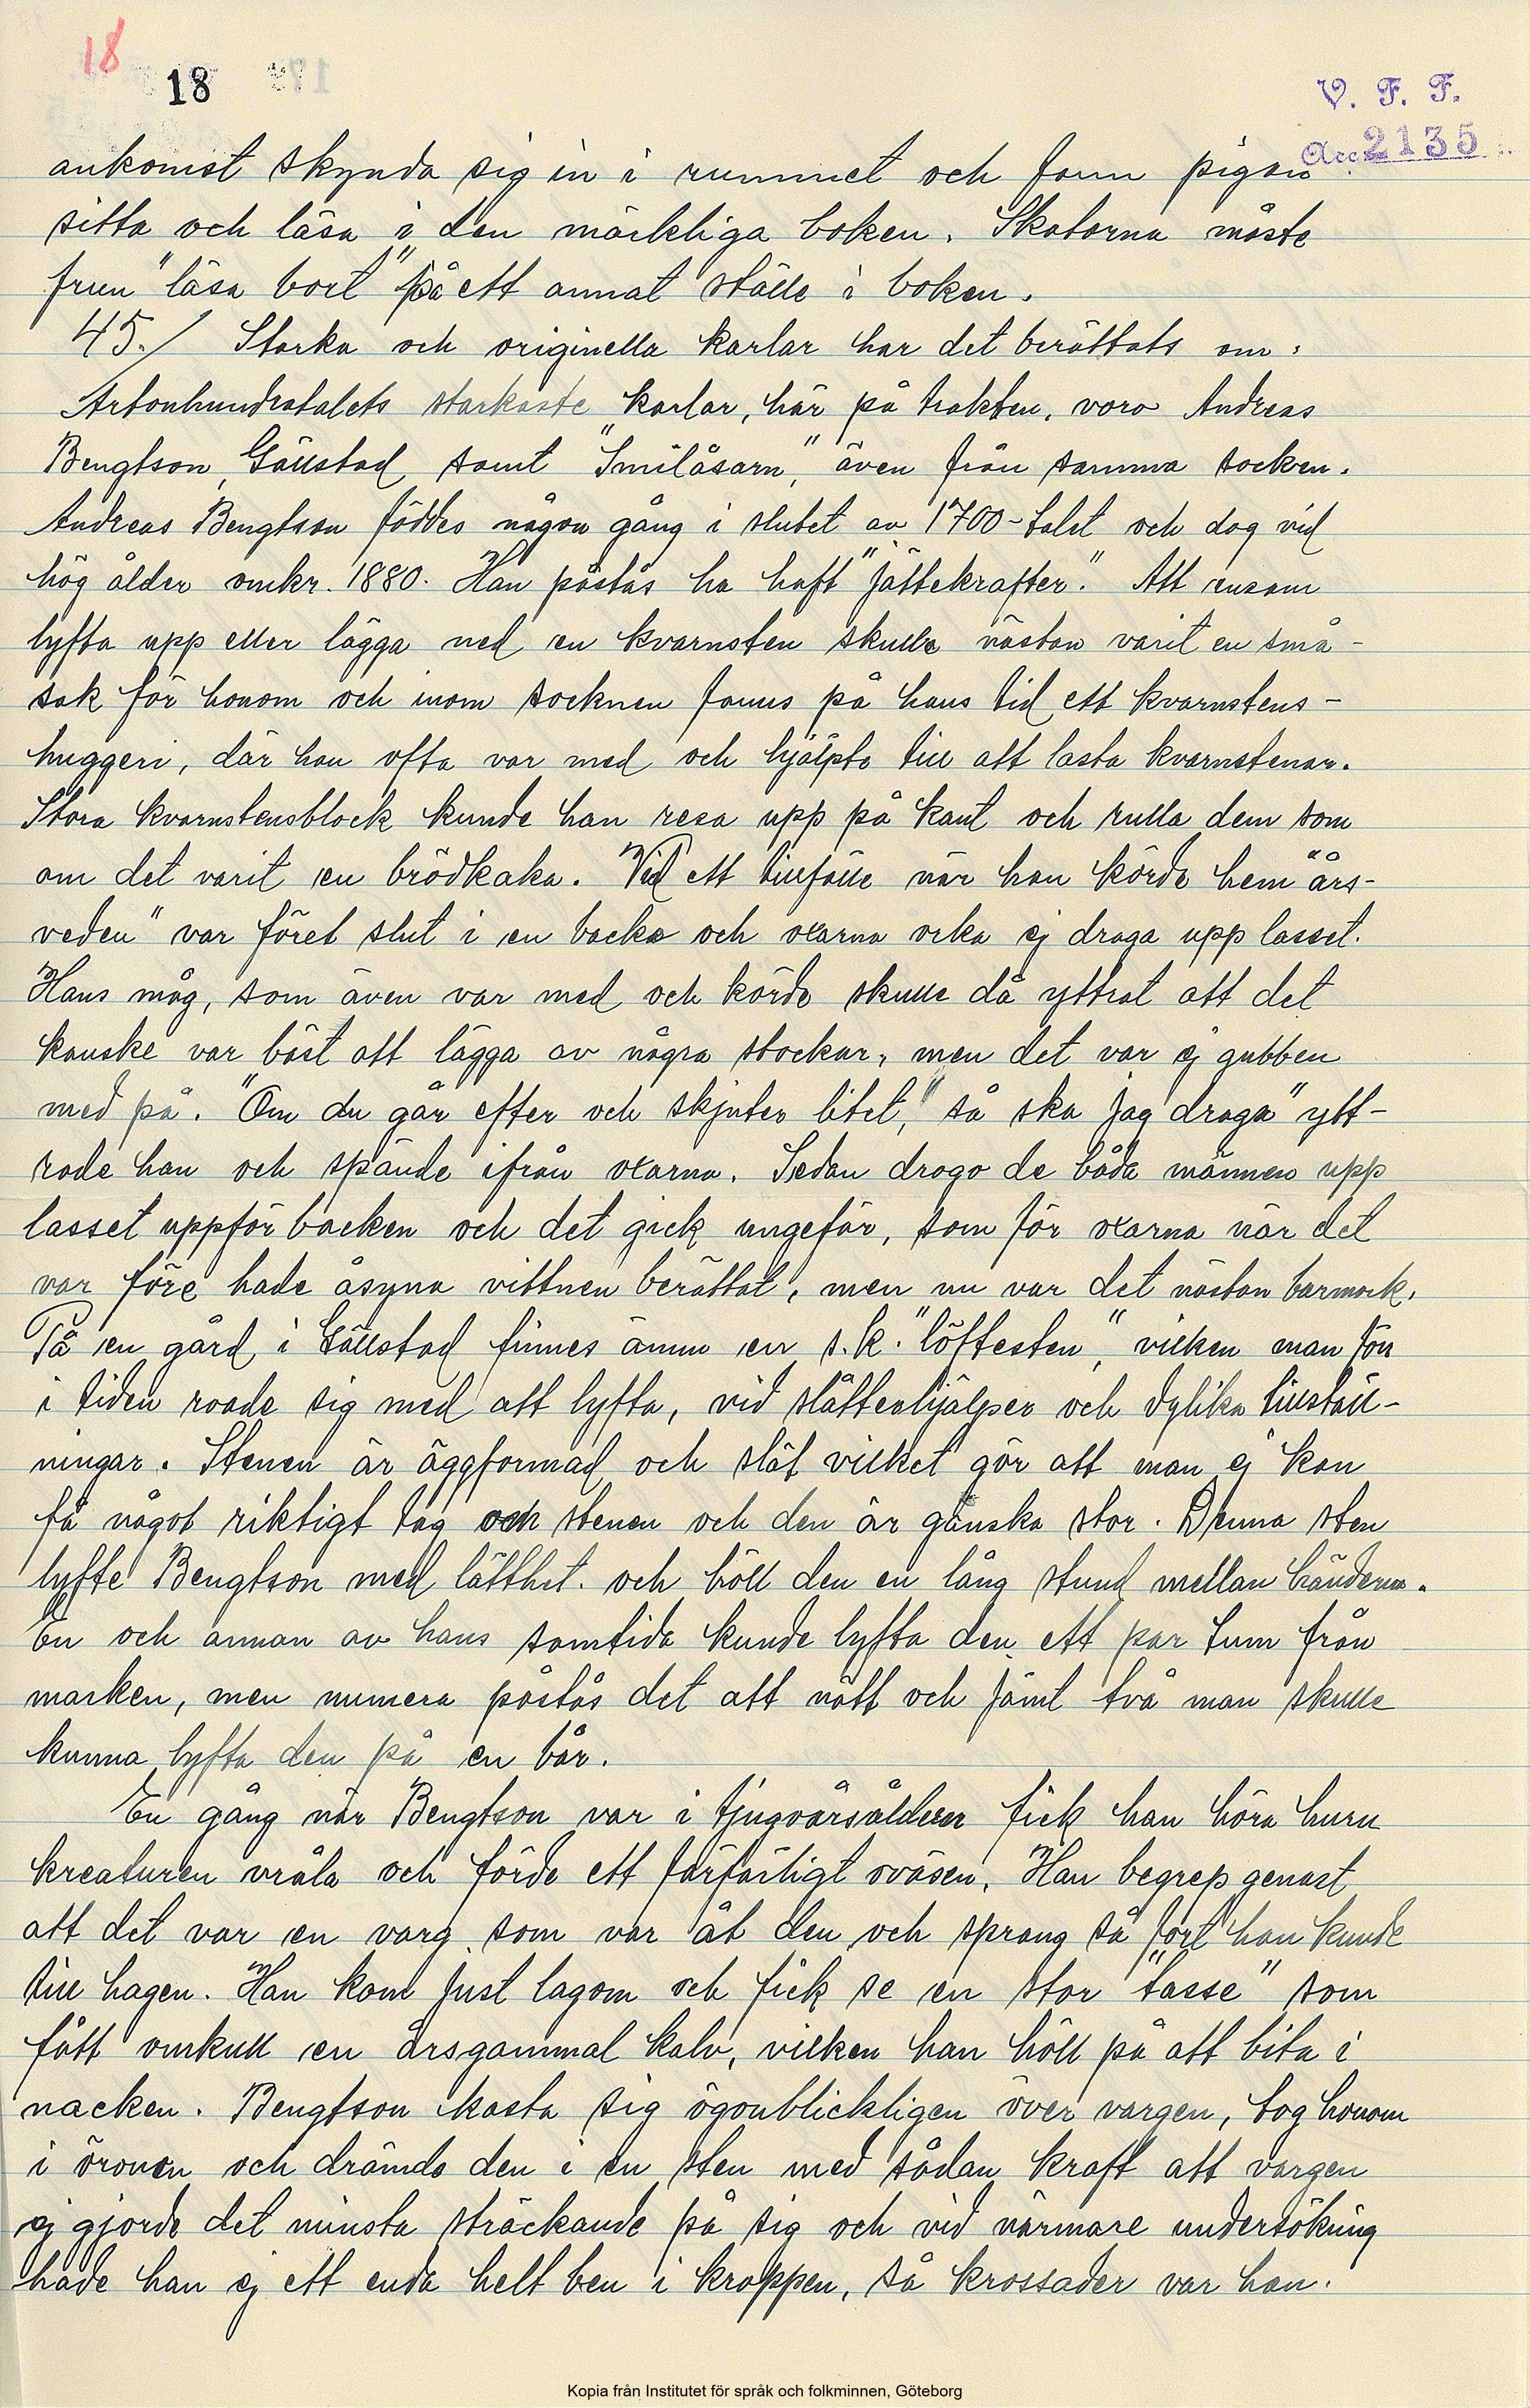 18
18
V. F. F.
Acc 2135
ankomst skynda sig in i rummet och fann pigan
sitta och läsa i den märkliga boken. Skatorna måste
frun "läsa bort" på ett annat ställe i boken.
45./ Starka och originella karlar har det berättats om:
Artonhundratalets starkaste karlar, här på trakten, voro Andreas
Bengtson, Gällstad samt "Smilåsarn", även från samma socken.
Andreas Bengtson föddes någon gång i slutet av 1700-talet och dog vid
hög ålder omkr. 1880. Han påstås ha haft "jättekrafter." Att ensam
lyfta upp eller lägga ned en kvarnsten skulle nästan varit en små-
sak för honom och inom socknen fanns på hans tid ett kvarnstens-
huggeri, där han ofta var med och hjälpte till att lasta kvarnstenar.
Stora kvarnstensblock kunde han resa upp på kant och rulla dem som
om det varit en brödkaka. Vid ett tillfälle när han körde hem "års-
veden" var föret slut i en backe och oxarna orka ej draga upp lasset.
Hans måg, som även var med och körde skulle då yttrat att det
kanske var bäst att lägga av några stockar, men det var ej gubben
med på. "Om du går efter och skjuter litet," så ska jag draga" ytt-
rade han och spände ifrån oxarna. Sedan drogo de båda männen upp
lasset uppför backen och det gick ungefär, som för oxarna när det
var före hade åsyna vittnen berättat, men nu var det nästan barmark.
På en gård i Gällstad finnes ännu en s.k. "löftesten", vilken man förr
i tiden roade sig med att lyfta, vid slåttenhjälper och dylika tillställ-
ningar. Stenen är äggformad och slät vilket gör att man ej kan
få något riktigt tag om stenen och den är ganska stor. Denna sten
lyfte Bengtson med lätthet. och höll den en lång stund mellan händerna.
En och annan av hans samtida kunde lyfta den ett par tum från
marken, men numera påstås det att nätt och jämt två man skulle
kunna lyfta den på en bår.
En gång när Bengtson var i tjugoårsåldern fick han höra huru
kreaturen vråla och förde ett förfärligt oväsen. Han begrep genast
att det var en varg som var åt den och sprang så fort han kunde
till hagen. Han kom just lagom och fick se en stor "tasse" som
fått omkull en årsgammal kalv, vilken han höll på att bita i
nacken. Bengtson kasta sig ögonblickligen över vargen, tog honom
i öronen och drämde den i en sten med sådan kraft att vargen
ej gjorde det minsta sträckande på sig och vid närmare undersökning
hade han ej ett enda helt ben i kroppen, så krossader var han.
Kopia från Institutet för språk och folkminnen, Göteborg